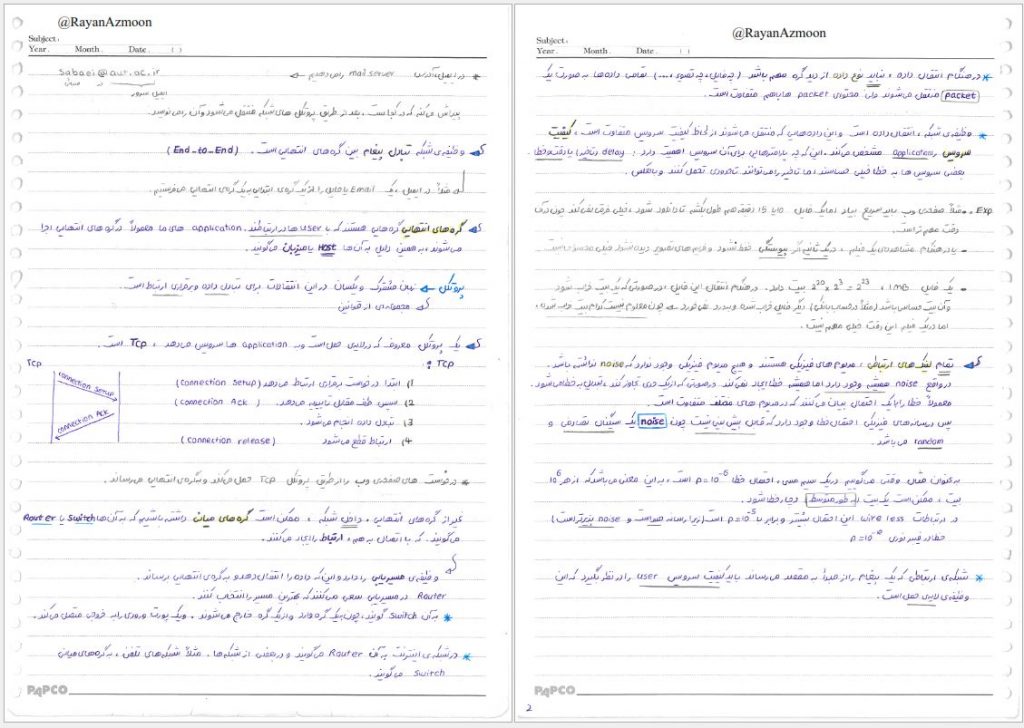 @RayanAzmoon
Subject:
Year. Month. Date. ( )
* در ایمیل، آدرس mail server را می دهیم ← sabaei@aut.ac.ir
ایمیل سرور
پیدا می کند که کجاست، بعد از طریق پروتکل های شبکه منتقل می شود و آن را می نویسد.
وظیفه ی شبکه تبادل پیغام بین گره های انتهایی است. (End_to_End)
مثلاً در ایمیل، یک Email یا فایل را از یک گره ی ابتدایی به یک گره ی انتهایی می فرستیم
گره های انتهایی گره هایی هستند که با user ها در ارتباطند. application های ما معمولاً در گره های انتهایی اجرا
می شوند، به همین دلیل به آن ها Host یا میزبان می گویند.
پروتکل ← زبان مشترک و یکسان در این انتقالات برای تبادل داده و برقراری ارتباط است.
مجموعه ای از قوانین
یک پروتکل معروف که در لایه ی حمل است و به application ها سرویس می دهد، TCP است.
TCP :
TCP
connection setup
connection Ack
1) ابتدا درخواست برقراری ارتباط می دهد (connection setup)
2) سپس طرف مقابل تایید می دهد. (connection Ack)
3) تبادل داده انجام می شود.
4) ارتباط قطع می شود (connection release)
* درخواست های صفحه ی وب را از طریق پروتکل TCP حمل می کند و به گره ی انتهایی می رساند.
غیر از گره های انتهایی، داخل شبکه، ممکن است گره های میانی داشته باشیم که به آن ها Switch یا Router
می گویند. که با اتصال به هم، ارتباط را ایجاد می کنند.
وظیفه ی مسیریابی را دارد و این که داده را انتقال دهد و به گره ی انتهایی برساند.
Router در مسیریابی سعی می کنند که بهترین مسیر را انتخاب کنند.
* به آن Switch گویند، چون به یک گره وارد و از یک گره خارج می شوند. و یک پورت ورودی را به خروجی منتقل می کند.
* در شبکه ی اینترنت به آن Router می گویند و در بعضی از شبکه ها. مثلاً شبکه های تلفن، به گره های میانی
Switch می گویند.
PAPCO
@RayanAzmoon
Subject:
Year. Month. Date. ( )
* در هنگام انتقال داده، نباید نوع داده از دید گره مهم باشد (چه فایل، چه تصویر، ...) تمامی داده ها به صورت یک
packet منتقل می شوند ولی محتوای packet ها باهم متفاوت است.
* وظیفه ی شبکه، انتقال داده است و این داده هایی که منتقل می شوند از لحاظ کیفیت سرویس متفاوت است، کیفیت
سرویس را application مشخص می کند. این که چه پارامترهایی برای آن سرویس اهمیت دارد: delay (تاخیر) یا دقت و خطا
بعضی سرویس ها به خطا خیلی حساسند، اما تاخیر را می توانند تا حدودی تحمل کنند و بالعکس.
Exp. - مثلاً صفحه ی وب باید سریع بیاید اما یک فایل 10 یا 15 دقیقه هم طول بکشد تا دانلود شود، خیلی فرقی نمی کند چون در آن
دقت مهم تر است.
- یا در هنگام مشاهده ی یک فیلم، در یک ثانیه از پیوستگی حفظ شود و فریم های تصویر دیده شود خیلی محسوس است
- یک فایل 1MB، 2^20 x 2^3 = 2^23 بیت دارد. در هنگام انتقال این فایل، در صورتی که یک بیت خراب شود
و آن بیت حساس باشد دیگر فایل خراب شده و بدرد نمی خورد ← چون معلوم نیست کدام بیت خراب شده،
اما در یک فیلم این دقت خیلی مهم نیست.
تمام لینک های ارتباطی، مدیوم های فیزیکی هستند و هیچ مدیوم فیزیکی وجود ندارد که noise نداشته باشد.
در واقع noise همیشه وجود دارد اما همیشه خطا ایجاد نمی کند در صورتی که از یک حدی تجاوز کند، تبدیل به خطا می شود.
معمولاً خطا را با یک احتمال بیان می کنند که در مدیوم های مختلف متفاوت است.
پس در رسانه های فیزیکی احتمال خطا وجود دارد که قابل پیش بینی نیست چون noise یک سیگنال تصادفی و
random می باشد.
به عنوان مثال وقتی می گوییم در یک سیم مسی، احتمال خطا p=10^-6 است، به این معنی می باشد که از هر 10^6
بیت، ممکن است یک بیت (به طور متوسط) دچار خطا شود.
در ارتباطات wire less این احتمال بیشتر و برابر با p=10^-5 است (زیرا رسانه هوا است و noise پذیرتر است)
خطا در فیبر نوری p=10^-12
* شبکه ی ارتباطی که یک پیغام را از مبدأ به مقصد می رساند باید کیفیت سرویس user را در نظر بگیرد که این
وظیفه ی لایه ی حمل است.
PAPCO
2